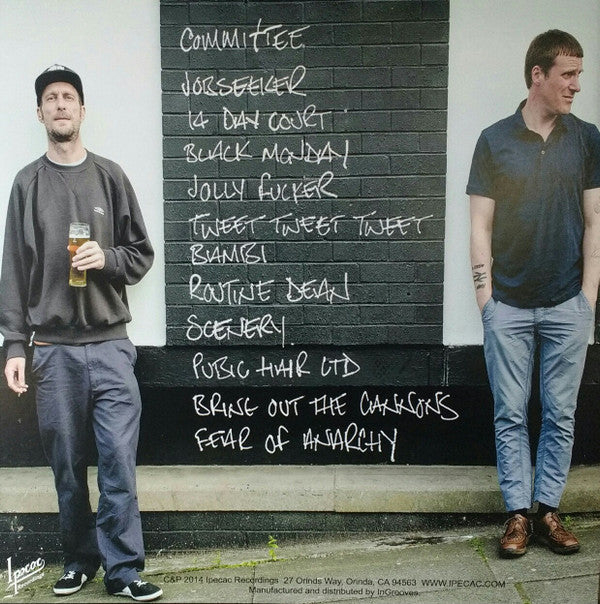 COMMITTEE
JOBSEEKER
14 DAY COURT
BLACK MONDAY
JOLLY FUCKER
TWEET TWEET TWEET
BAMBI
ROUTINE DEAN
SCENERY
PUBIC HAIR LTD
BRING OUT THE CANNONS
FEAR OF ANARCHY
Ipecac
Recordings
C&P 2014 Ipecac Recordings 27 Orinds Way, Orinda, CA 94563 WWW.IPECAC.COM
Manufactured and distributed by InGrooves.